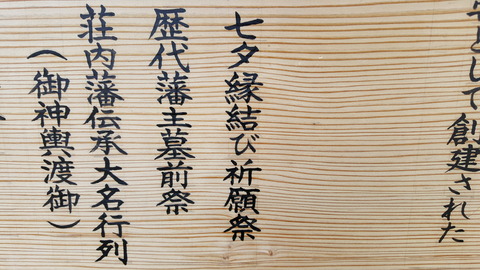 として創建された
七夕縁結び祈願祭
歴代藩主墓前祭
荘内藩伝承大名行列
（御神輿渡御）